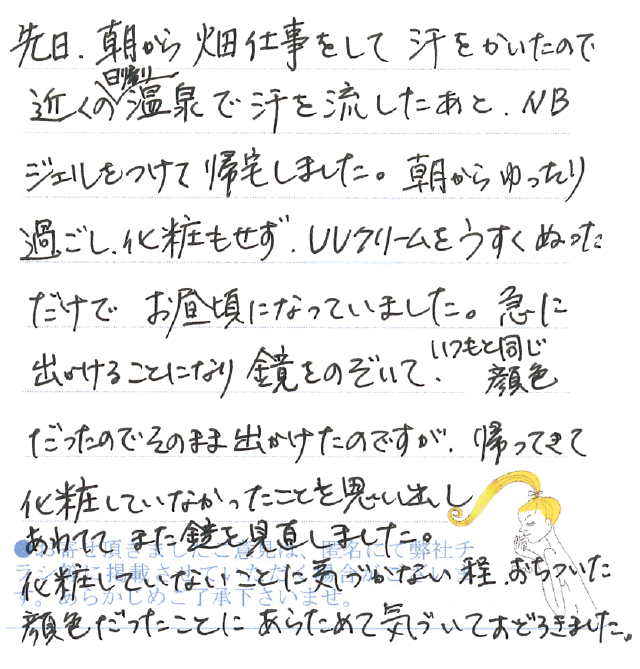 先日、朝から畑仕事をして汗をかいたので
近くの日帰り温泉で汗を流したあと、NB
ジェルをつけて帰宅しました。朝からゆったり
過ごし、化粧もせず、UVクリームをうすくぬった
だけでお昼頃になっていました。急に
出かけることになり鏡をのぞいて、いつもと同じ顔色
だったのでそのまま出かけたのですが、帰ってきて
化粧していなかったことを思い出し
あわててまた鏡を見直しました。
お寄せ頂きましたご意見は、匿名にて弊社チ
化粧していないことに気づかない程、おちついた
ラシ等に掲載させていただく場合がございま
す。あらかじめご了承下さいませ。
顔色だったことにあらためて気づいておどろきました。